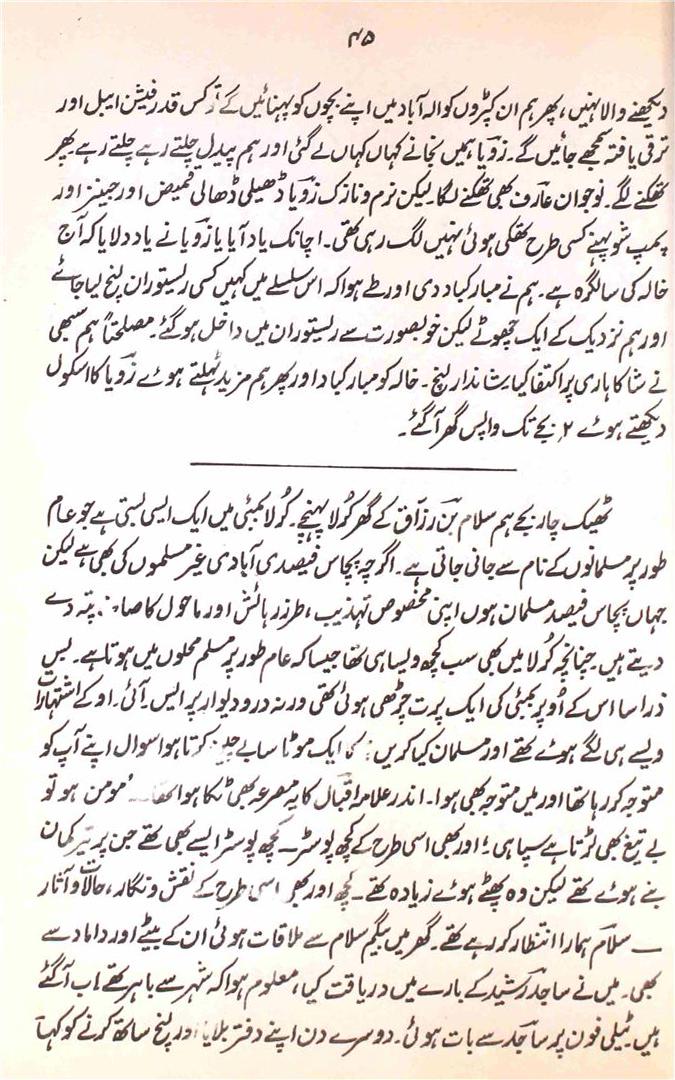 ۴۵
دیکھنے والا نہیں، پھر ہم ان کپڑوں کو الہ آباد میں اپنے بچوں کو پہنائیں گے تو کس قدر فیشن ایبل اور
ترقی یافتہ سمجھے جائیں گے۔ زویا ہمیں نجانے کہاں کہاں لے گئی اور ہم پیدل چلتے رہے چلتے رہے۔ پھر
تھکنے لگے۔ نوجوان عارف بھی تھکنے لگا۔ لیکن نرم و نازک زویا ڈھیلی ڈھالی قمیض اور جینز اور
پمپ شو پہنے کسی طرح تھکی ہوئی نہیں لگ رہی تھی۔ اچانک یاد آیا یا زویا نے یاد دلایا کہ آج
خالہ کی سالگرہ ہے۔ ہم نے مبارکباد دی اور طے ہوا کہ اس سلسلے میں کہیں کسی ریستوران لنچ لیا جائے
اور ہم نزدیک کے ایک چھوٹے لیکن خوبصورت سے ریستوران میں داخل ہو گئے۔ مصلحتاً ہم سبھی
نے شاکاہاری پر اکتفا کیا۔ شاندار لنچ۔ خالہ کو مبارکباد اور پھر ہم مزید ٹہلتے ہوئے زویا کا اسکول
دیکھتے ہوئے ۲ بجے تک واپس گھر آگئے۔
ٹھیک چار بجے ہم سلام بن رزاق کے گھر کُرلا پہنچے۔ کُرلا بمبئی میں ایک ایسی بستی ہے جو عام
طور پر مسلمانوں کے نام سے جانی جاتی ہے۔ اگرچہ پچاس فیصدی آبادی غیر مسلموں کی بھی ہے لیکن
جہاں پچاس فیصد مسلمان ہوں اپنی مخصوص تہذیب، طرز رہائش اور ماحول کا صاف پتہ دے
دیتے ہیں۔ چنانچہ کُرلا میں بھی سب کچھ ویسا ہی تھا جیسا کہ عام طور پر مسلم محلوں میں ہوتا ہے۔ بس
ذرا سا اس کے اُوپر بمبئی کی ایک پرت چڑھی ہوئی تھی ورنہ در و دیوار پر ایس۔ آئی۔ او کے اشتہارات
ویسے ہی لگے ہوئے تھے اور مسلمان کیا کریں؟ کا ایک موٹا سا بے چین کرتا ہوا سوال اپنے آپ کو
متوجہ کر رہا تھا اور میں متوجہ بھی ہوا۔ اندر علامہ اقبال کا یہ مصرعہ بھی ٹنکا ہوا تھا۔ ’مومن ہو تو
بے تیغ بھی لڑتا ہے سپاہی‘ اور بھی اسی طرح کے کچھ پوسٹر۔ کچھ پوسٹر ایسے بھی تھے جن پر تیر کمان
بنے ہوئے تھے لیکن وہ پھٹے ہوئے زیادہ تھے۔ کچھ اور بھی اسی طرح کے نقش و نگار، حالات و آثار
— سلام ہمارا انتظار کر رہے تھے۔ گھر میں بیگم سلام سے ملاقات ہوئی ان کے بیٹے اور داماد سے
بھی۔ میں نے ساجد رشید کے بارے میں دریافت کیا، معلوم ہوا کہ شہر سے باہر تھے اب آگئے
ہیں۔ ٹیلی فون پر ساجد سے بات ہوئی۔ دوسرے دن اپنے دفتر بلایا اور لنچ ساتھ کرنے کو کہا